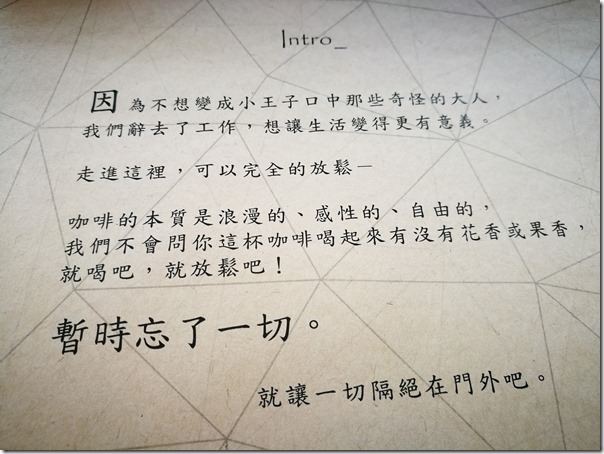 Intro_
因為不想變成小王子口中那些奇怪的大人，
我們辭去了工作，想讓生活變得更有意義。
走進這裡，可以完全的放鬆－
咖啡的本質是浪漫的、感性的、自由的，
我們不會問你這杯咖啡喝起來有沒有花香或果香，
就喝吧，就放鬆吧！
暫時忘了一切。
就讓一切隔絕在門外吧。